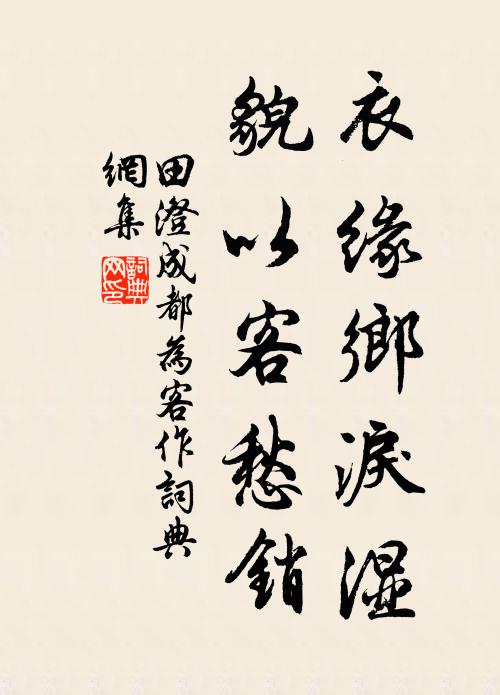 衣緣鄉淚濕
貌以客愁銷
田澄成都為客作詞典
網集
詞典網印